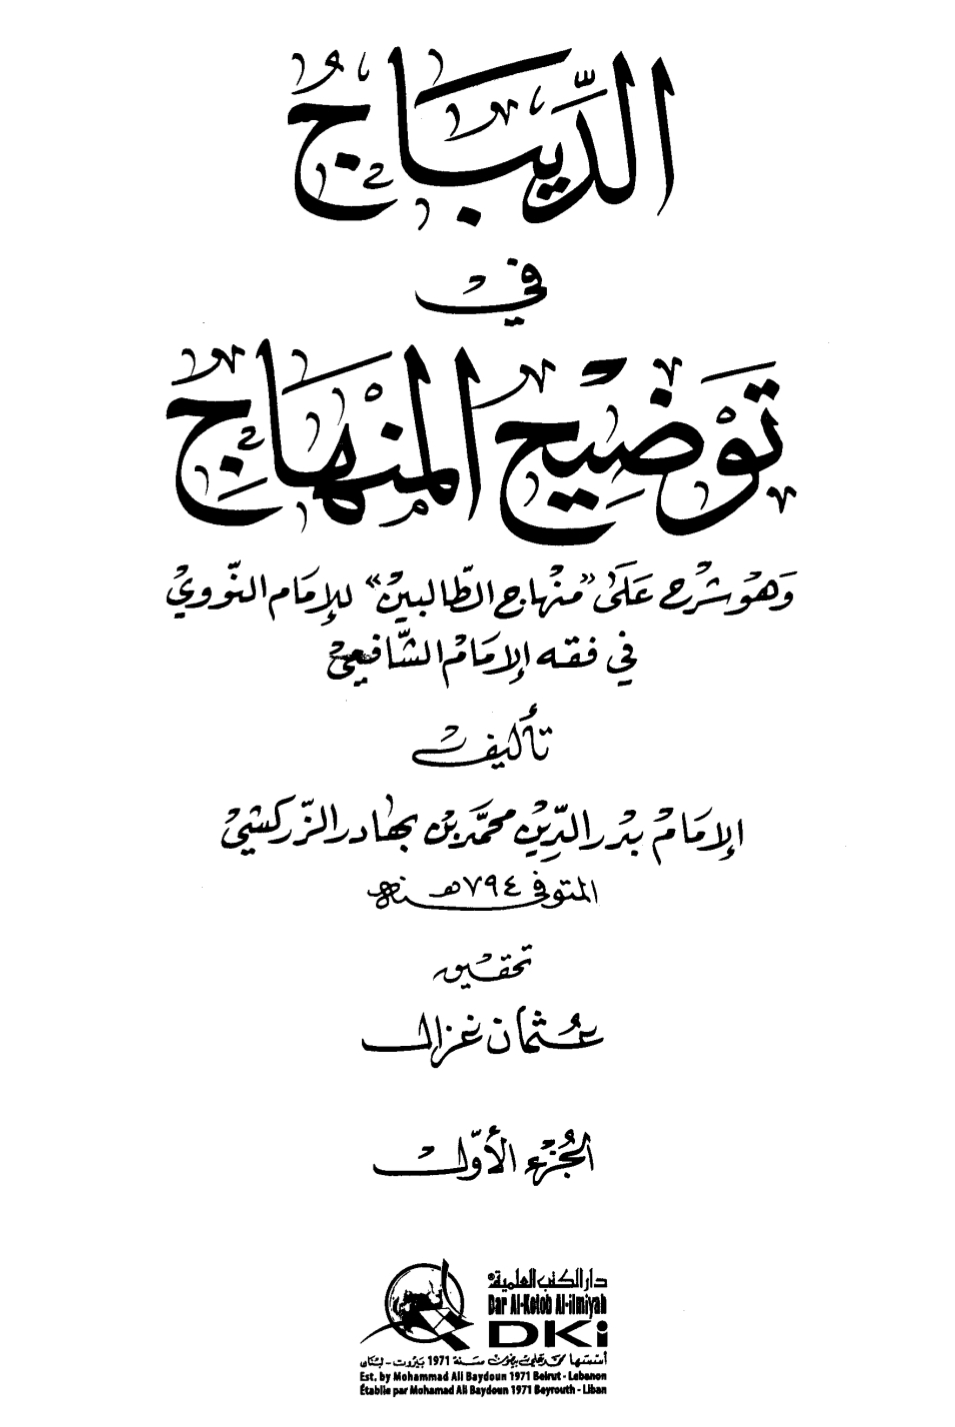 الدِّيبَاجُ
في
تَوْضِيحِ الْمِنْهَاجِ
وَهُوَ شرح عَلَى "منهاج الطّالبين" للإمَام النّووي
في فقه الإمَام الشّافعي
تأليف
الإمَام بدر الدِّين محمَّد بن بهَادر الزّركشي
المتوفى سنة ٧٩٤هـ
تحقيق
عُثمان غزال
الجُزء الأوّل
دار الكتب العلمية
Dar Al-Kotob Al-ilmiyah
DKi
أسسها محمد علي بيضون سنة 1971 بيروت - لبنان
Est. by Mohammad Ali Baydoun 1971 Beirut - Lebanon
Établie par Mohamad Ali Baydoun 1971 Beyrouth - Liban